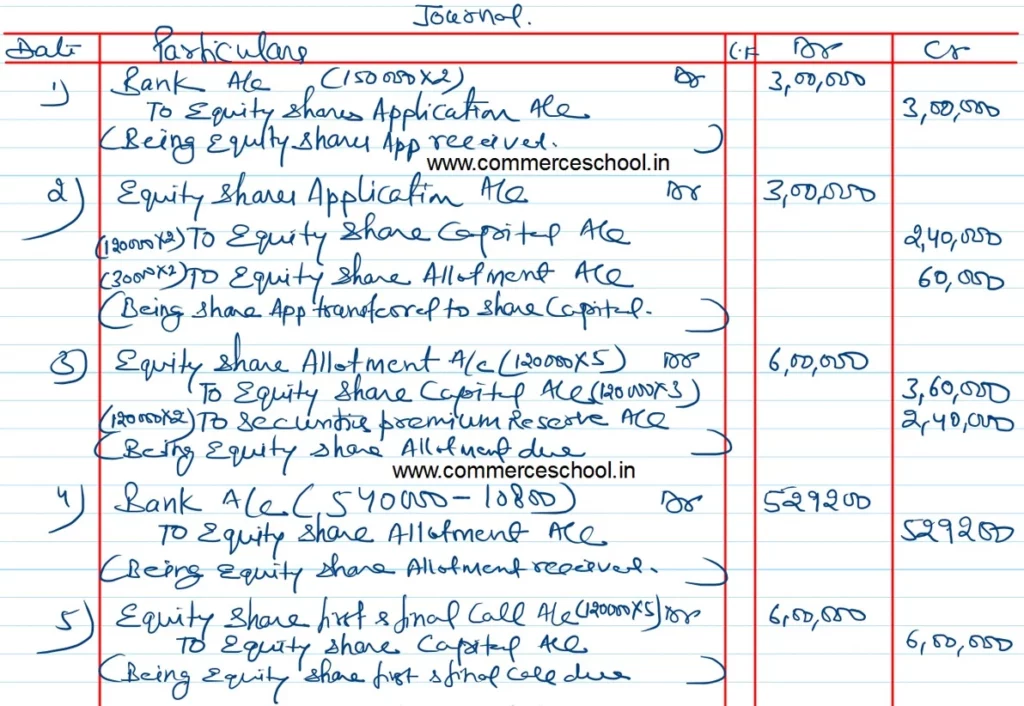 Journal.
Date Particulars L.F Dr Cr
1) Bank A/c (150000×2) Dr 3,00,000
To Equity Shares Application A/c 3,00,000
(Being Equity Shares App received.)
www.commerceschool.in
2) Equity Shares Application A/c Dr 3,00,000
(120000×2) To Equity Share Capital A/c 2,40,000
(30000×2) To Equity Share Allotment A/c 60,000
(Being Share App transferred to Share Capital.)
3) Equity Share Allotment A/c (120000×5) Dr 6,00,000
To Equity Share Capital A/c (120000×3) 3,60,000
(120000×2) To Securities premium Reserve A/c 2,40,000
(Being Equity Share Allotment due)
www.commerceschool.in
4) Bank A/c (540000-10800) Dr 529200
To Equity Share Allotment A/c 529200
(Being Equity Share Allotment received.)
5) Equity Share first & final Call A/c (120000×5) Dr 6,00,000
To Equity Share Capital A/c 6,00,000
(Being Equity Share first & final Call due)